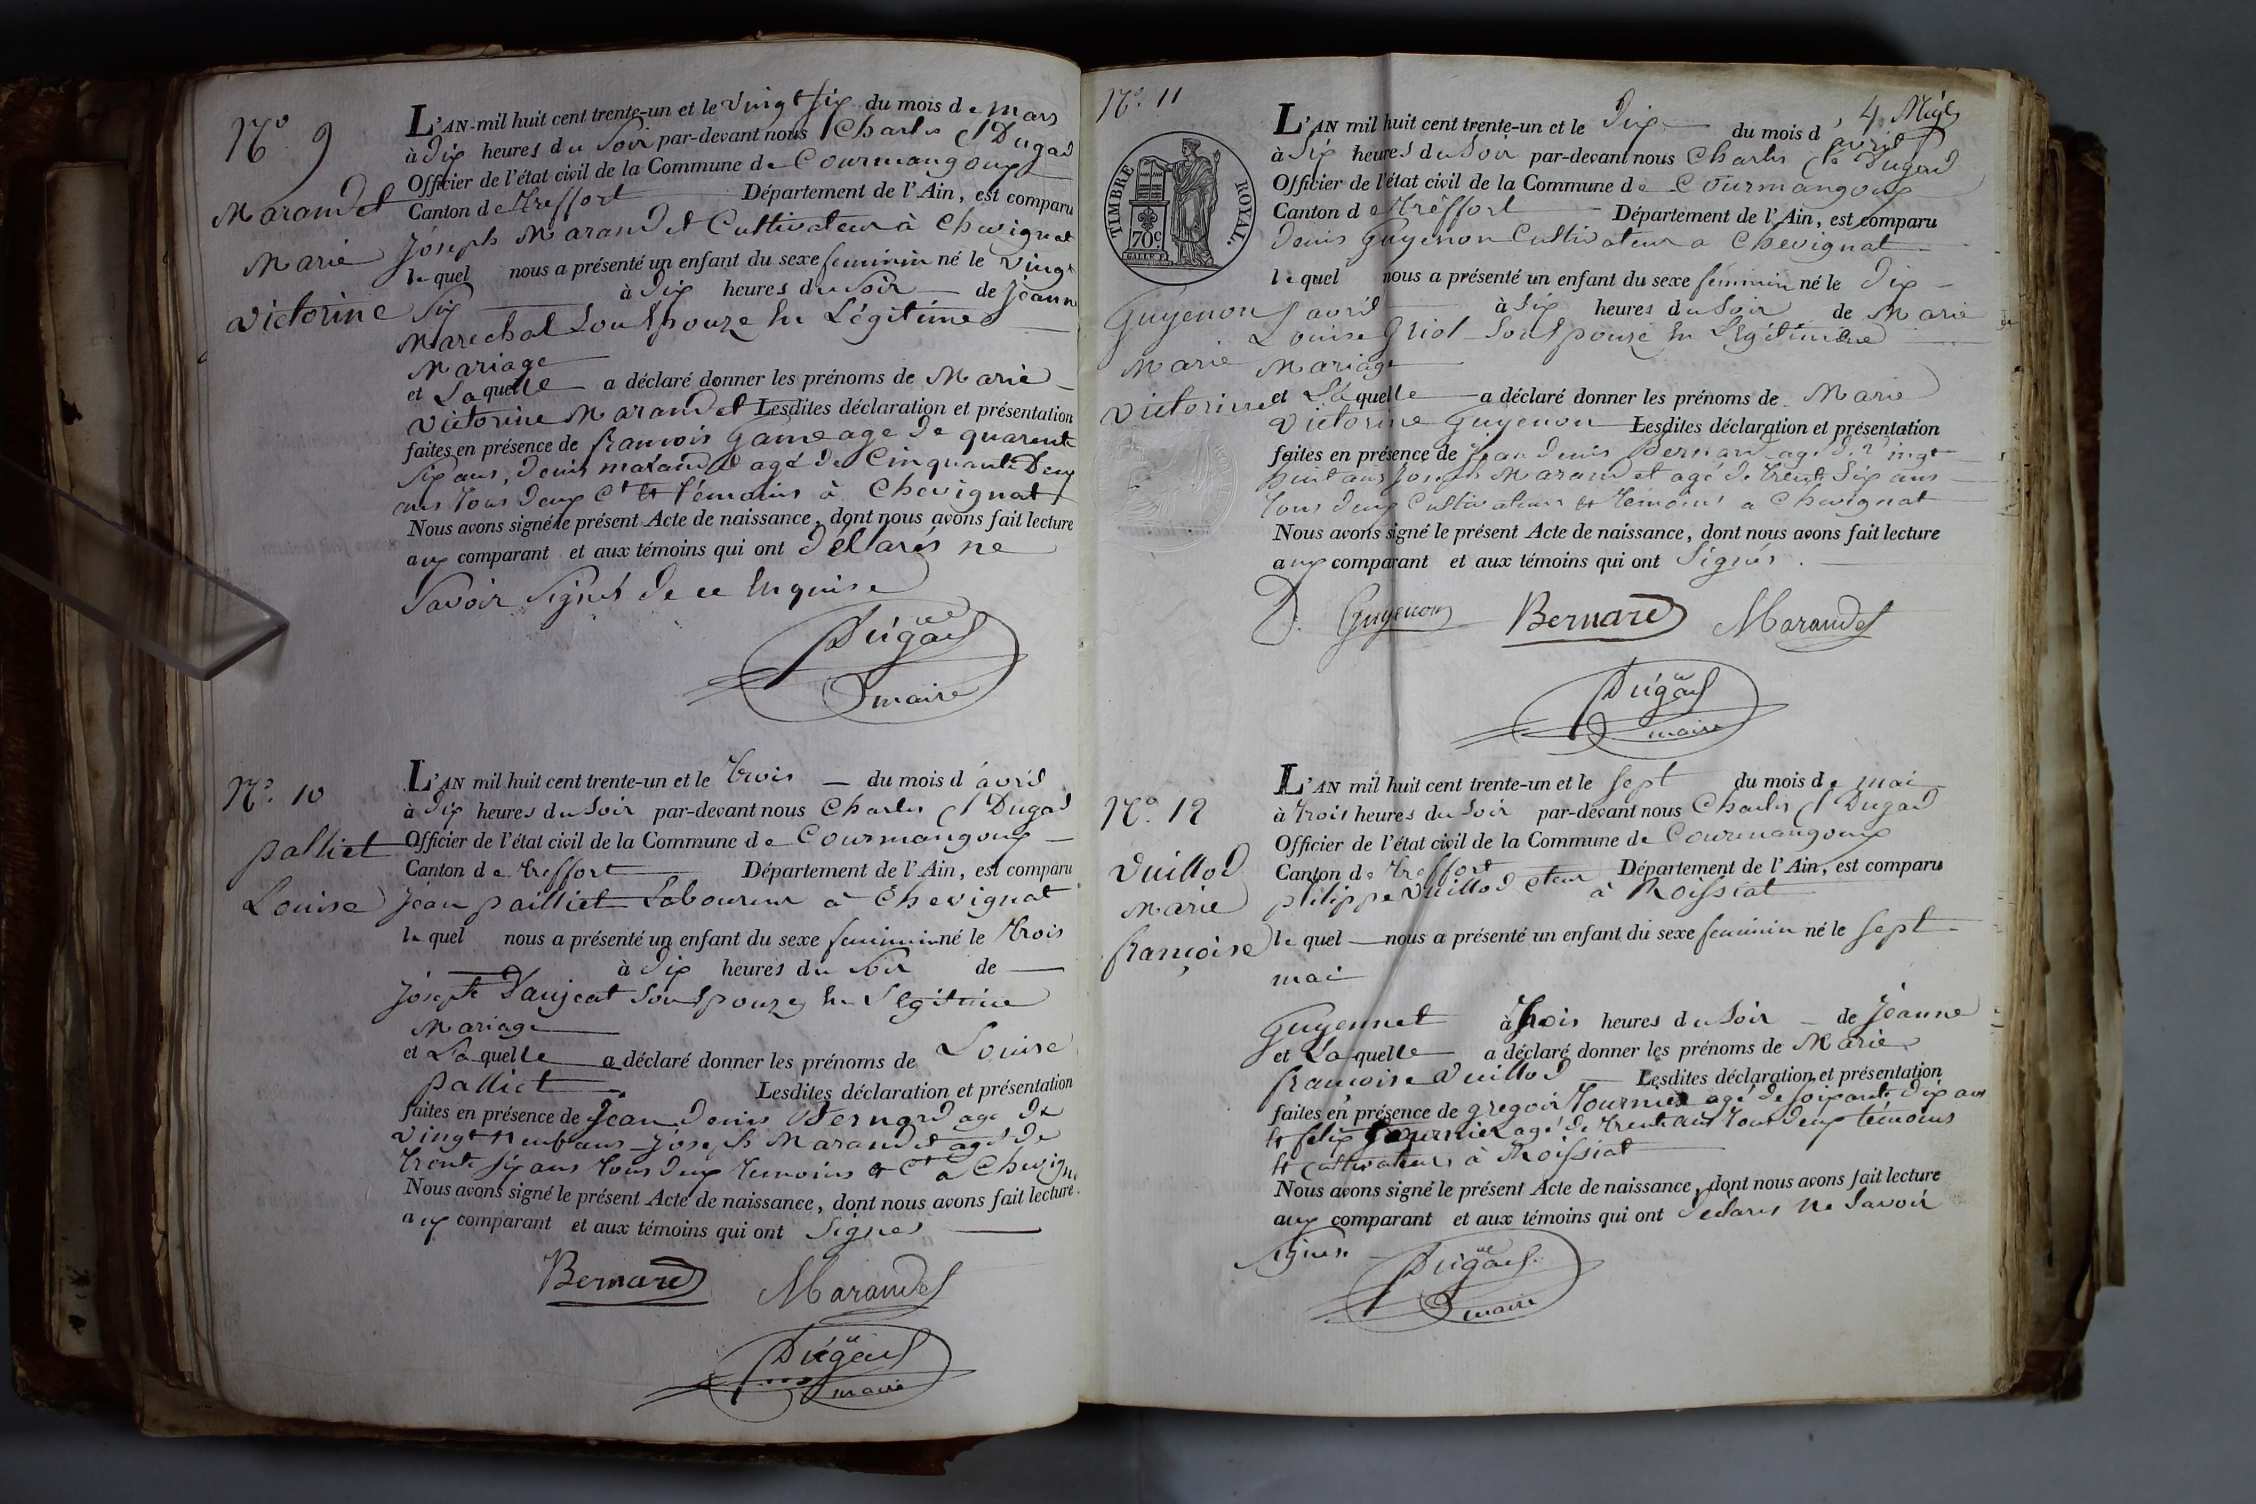 N.° 9
Marandet
Marie
victorine
L'AN mil huit cent trente-un et le vingt six du mois de mars
à dix heures du Soir par-devant nous Charles Dugad
Officier de l'état civil de la Commune de Courmangoux
Canton de treffort Département de l'Ain, est comparu
joseph Marandet Cultivateur à Chevignat
le quel nous a présenté un enfant du sexe feminin né le vingt
Six à dix heures du Soir de jeanne
Marechal Son Epouze En Légitime
Mariage
et Laquelle a déclaré donner les prénoms de Marie
victorine Marandet Lesdites déclaration et présentation
faites en présence de francois Game age de quarente
Six ans, denis marandet agé de Cinquante Deux
ans tous deux et témoins à Chevignat
Nous avons signé le présent Acte de naissance, dont nous avons fait lecture
aux comparant et aux témoins qui ont déclarés ne
Savoir Signés de ce Enquise
Dugad
maire
N.° 10
palliet
Louise
L'AN mil huit cent trente-un et le trois du mois d'avril
à dix heures du Soir par-devant nous Charles Dugad
Officier de l'état civil de la Commune de Courmangoux
Canton de treffort Département de l'Ain, est comparu
jean pailliet Laboureur à Chevignat
le quel nous a présenté un enfant du sexe feminin né le trois
à dix heures du Soir de
josephte Daujeat Son Epouze En Légitime
Mariage
et Laquelle a déclaré donner les prénoms de Louise
palliet Lesdites déclaration et présentation
faites en présence de jean denis Bernard age de
vingt neuf ans joseph Marandet agé de
trente six ans tous deux temoins et à Chevign.
Nous avons signé le présent Acte de naissance, dont nous avons fait lecture
aux comparant et aux témoins qui ont Signés
Bernard Marandet
Dugad
maire
N.° 11
TIMBRE ROYAL.
70c
Guyenon
Marie
victorine
4
L'AN mil huit cent trente-un et le dix du mois d'avril
à Six heures du Soir par-devant nous Charles Dugad
Officier de l'état civil de la Commune de Courmangoux
Canton de tréffort Département de l'Ain, est comparu
denis Guyenon Cultivateur a Chevignat
le quel nous a présenté un enfant du sexe féminin né le dix
avril à Six heures du Soir de Marie
Louise Griot Son Epouze En Légitime
Mariage
et Laquelle a déclaré donner les prénoms de Marie
victorine Guyenon Lesdites déclaration et présentation
faites en présence de jean denis Bernard agé de vingt
huit ans joseph Marandet agé de trente Six ans
tous deux Cultivateurs et temoins a Chevignat
Nous avons signé le présent Acte de naissance, dont nous avons fait lecture
aux comparant et aux témoins qui ont Signés.
D. Guyenon Bernard Marandet
Dugad
maire
N.° 12
vuillod
Marie
françoise
L'AN mil huit cent trente-un et le sept du mois de mai
à trois heures du Soir par-devant nous Charles Dugad
Officier de l'état civil de la Commune de Courmangoux
Canton de treffort Département de l'Ain, est comparu
philippe vuillod cteur à Roissiat
le quel nous a présenté un enfant du sexe feminin né le sept
mai
Guyennet à trois heures du Soir de jeanne
et Laquelle a déclaré donner les prénoms de Marie
françoise vuillod Lesdites déclaration et présentation
faites en présence de gregoir tournier agé de soixante dix ans
Et felix tournier agé de trente ans tous deux témoins
Et Cultivateurs à Roissiat
Nous avons signé le présent Acte de naissance, dont nous avons fait lecture
aux comparant et aux témoins qui ont déclarés Ne Savoir
Signés.
Dugad
maire